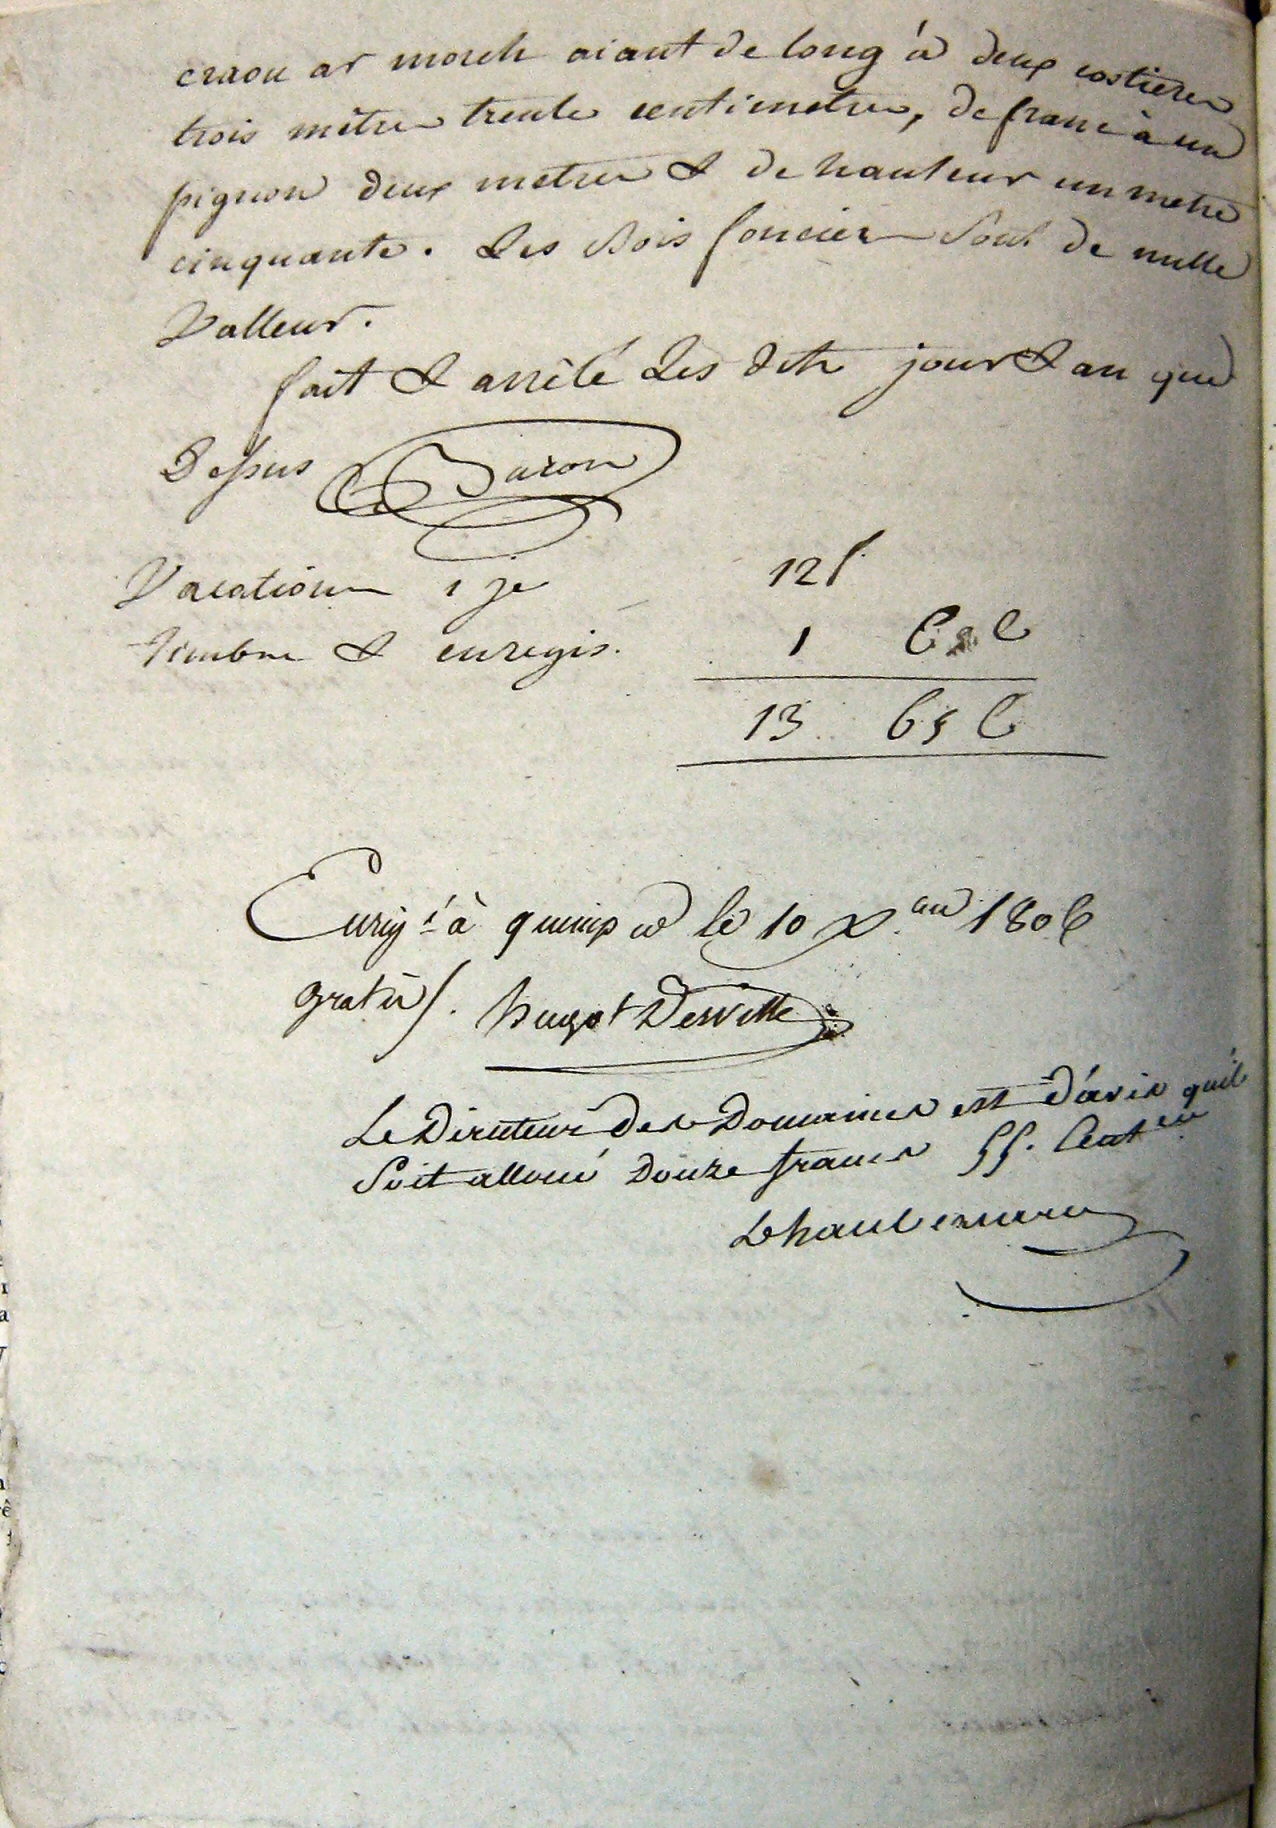 craou ar moch aiant de long à deux costieres
trois mètres trente centimetres, de franc à un
pignon deux metres & de hauteur un metre
cinquante. Les Bois fonciers sont de nulle
Valleur.
fait & arrêté Les dits jour & an que
Dessus Baron
Vacations 1 je 12f
timbre & enregis. 1 65 C
13 65 C
Enrigé à quimper le 10 Xbre an 1806
gratis. hugot Derville
Le Directeur des Domaines est d'avis qu'il
Soit alloué Douze francs 55. Centes